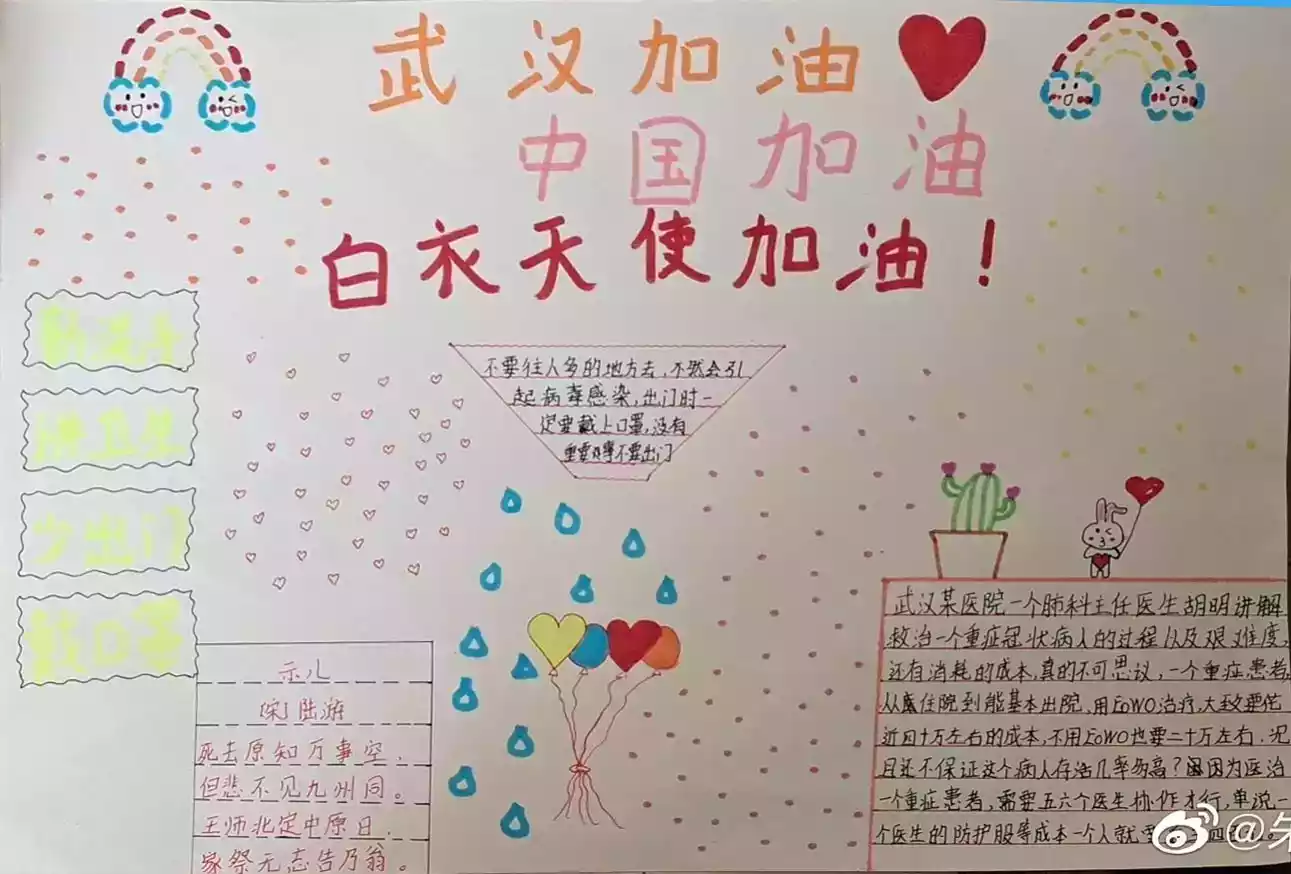 武汉加油
中国加油
白衣天使加油！
勤洗手
讲卫生
少出门
戴口罩
不要往人多的地方去，不然会引
起病毒感染，出门时一
定要戴上口罩，没有
重要的事不要出门
示儿
[宋]陆游
死去原知万事空，
但悲不见九州同。
王师北定中原日，
家祭无忘告乃翁。
武汉某医院一个肺科主任医生胡明讲解
救治一个重症冠状病人的过程以及艰难度，
还有消耗的成本，真的不可思议，一个重症患者，
从住院到能基本出院，用EOWO治疗，大致要花
近四十万左右的成本，不用EOWO也要二十万左右．况
且还不保证这个病人存活几率多高？因为医治
一个重症患者，需要五六个医生协作才行，单说一
个医生的防护服等成本一个人就要
@朱